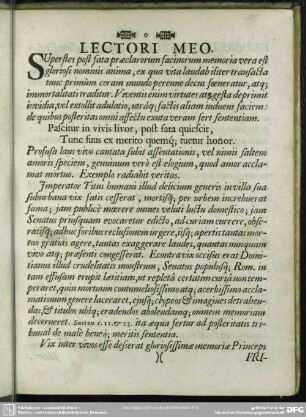 LECTORI MEO.
SUperstes post fata præclarorum facinorum memoria vera est
gloriosi nominis anima, ex qua vita laudabiliter transacta
tunc primùm coram mundo perenne decus fœneratur, atq;
immortalitati traditur. Viventis enim virtutes atq; gesta deprimit
invidia, vel extollit adulatio, utráq; factis aliam induens faciem:
de quibus posteritas omni affectu exuta veram fert sententiam.
Pascitur in vivis livor, post fata quiescit,
Tunc suus ex merito quemq; tuetur honor.
Profusa laus vivo cantata subit assentationis, vel nimii saltem
amoris speciem, genuinum verò est elogium, quod amor accla-
mat mortuo. Exemplo radiabit veritas.
Imperator Titus humani illud delicium generis in villa sua
suburbana vix fatis cesserat, mortisq; per urbem increbuerat
fama; jam publicè mœrere omnes veluti luctu domestico; jam
Senatus priusquam evocaretur edicto, ad curiam currere, obse-
ratisq; adhuc foribus reclusonem urgere, iisq; apertis tantas mor-
tuo gratias agere, tantas exaggerare laudes, quantas nunquam
vivo atq; præsenti congesserat. Econtra vix occisus erat Domi-
tianus illud crudelitatis monstrum, Senatus populusq; Rom. in
tam effusam erupit lætitiam, ut repletâ certatim curiâ non tem-
peraret, quin mortuum contumeliosissimo atq; acerbissimo accla-
mationum genere laceraret, ejusq; clypeos & imagines detraben-
das, & titulos ubiq; eradendos abolendamq; omnem memoriam
decerneret. Sueton c. 11. & 23. ita æqua fertur ad posteritatis tri-
bunal de malè benéq; meritis sententia.
Vix inter vivos esse desierat gloriosissimæ memoriæ Princeps
)( FRI-